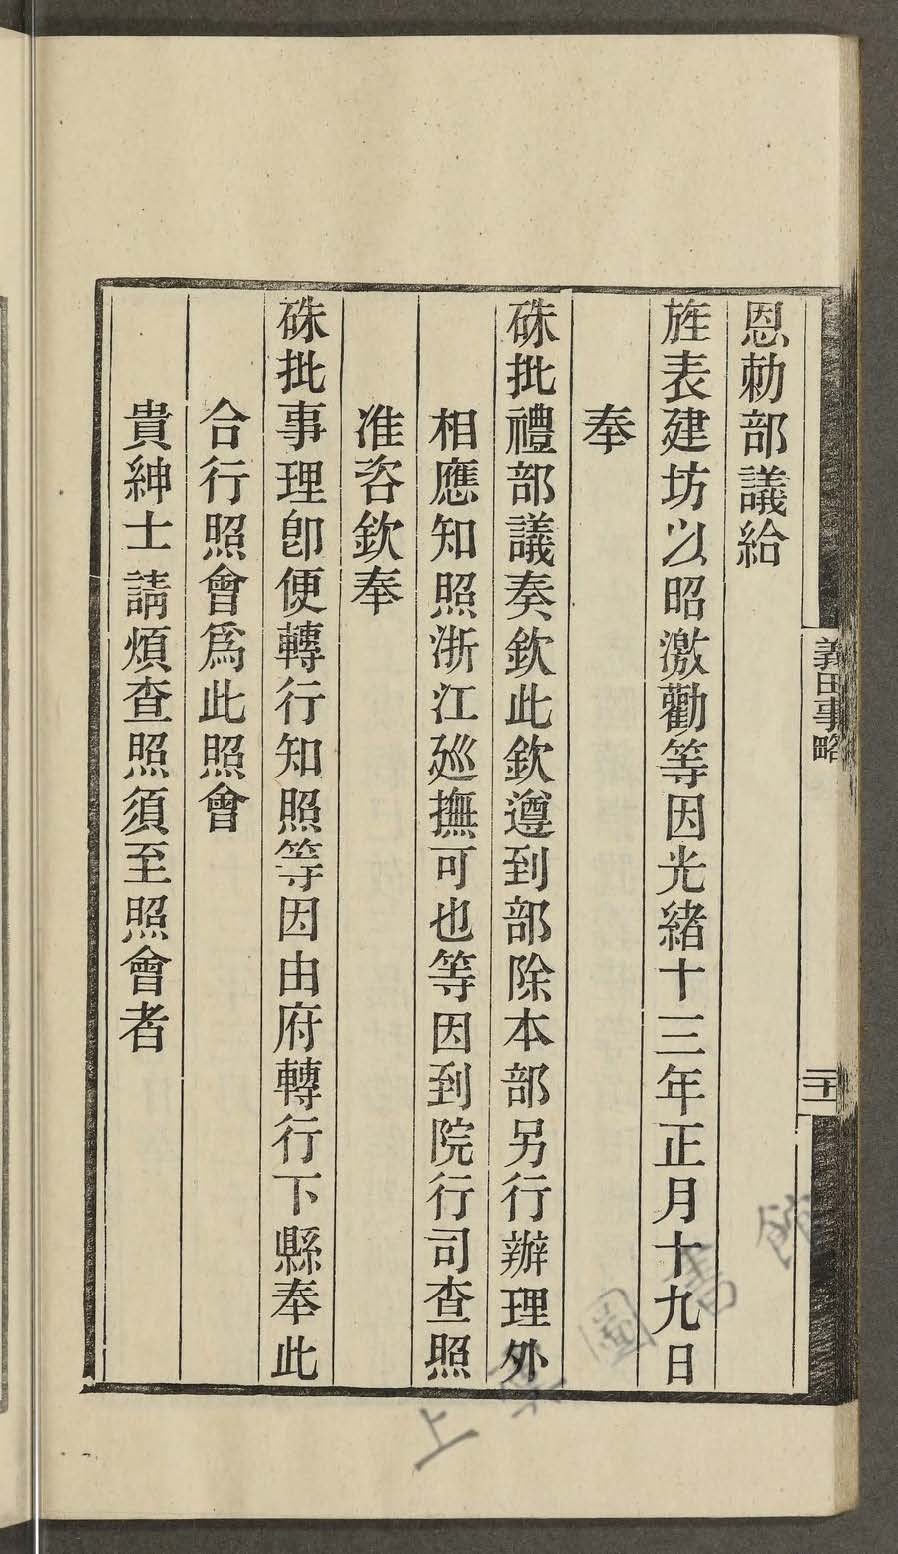 恩勅部議給
旌表建坊以昭激勸等因光緒十三年正月十九日
奉
硃批禮部議奏欽此欽遵到部除本部另行辦理外
相應知照浙江廵撫可也等因到院行司查照
准咨欽奉
硃批事理卽便轉行知照等因由府轉行下縣奉此
合行照會爲此照會
貴紳士請煩查照須至照會者
義田事略
上海圖書館